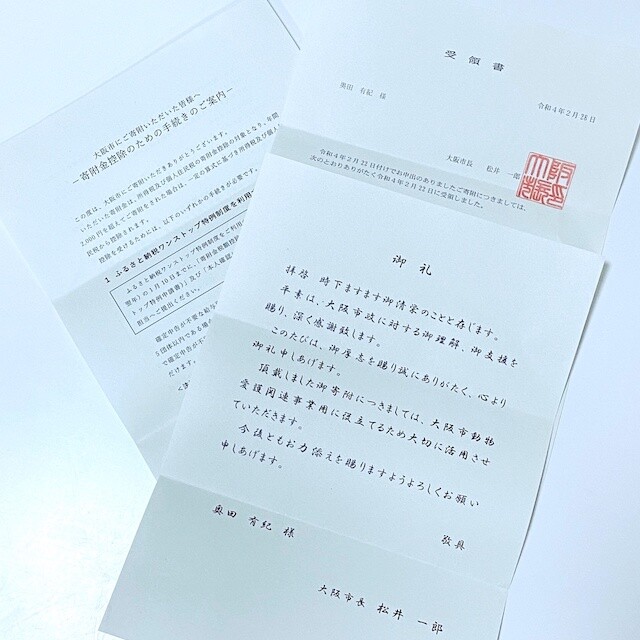 大阪市にご寄附いただいた皆様へ
－寄附金控除のための手続きのご案内－
この度は、大阪市にご寄附いただきありがとうございます。
いただいた寄附金は、所得税及び個人住民税の寄附金控除の対象となり、年間
2,000円を超えてご寄附をされた場合は、一定の算式に基づき所得税及び個人
民税から控除されます。
控除を受けるためには、以下のいずれかの手続きが必要です
1 ふるさと納税ワンストップ特例制度を利用
ふるさと納税ワンストップ特例制度をご利用
翌年）の1月10日までに、「寄附金税額控除
トップ特例申請書）」及び「本人確認
担当へご提出ください。
確定申告が不要な給与
5団体以内である場
で確定申告が不
だけます。
受領書
奥田 有紀 様
令和4年2月28日
大阪市長 松井 一郎
令和4年2月22日付けでお申出のありましたご寄附につきましては、
次のとおりありがたく令和4年2月22日に受領しました。
御礼
拝啓 時下ますます御清栄のことと存じます。
平素は、大阪市政に対する御理解、御支援を
賜り、深く感謝致します。
このたびは、御厚志を賜り誠にありがたく、心より
御礼申しあげます。
頂戴しました御寄附につきましては、大阪市動物
愛護関連事業用に役立てるため大切に活用させ
ていただきます。
今後ともお力添えを賜りますようよろしくお願い
申しあげます。
敬具
奥田 有紀 様
大阪市長 松井 一郎